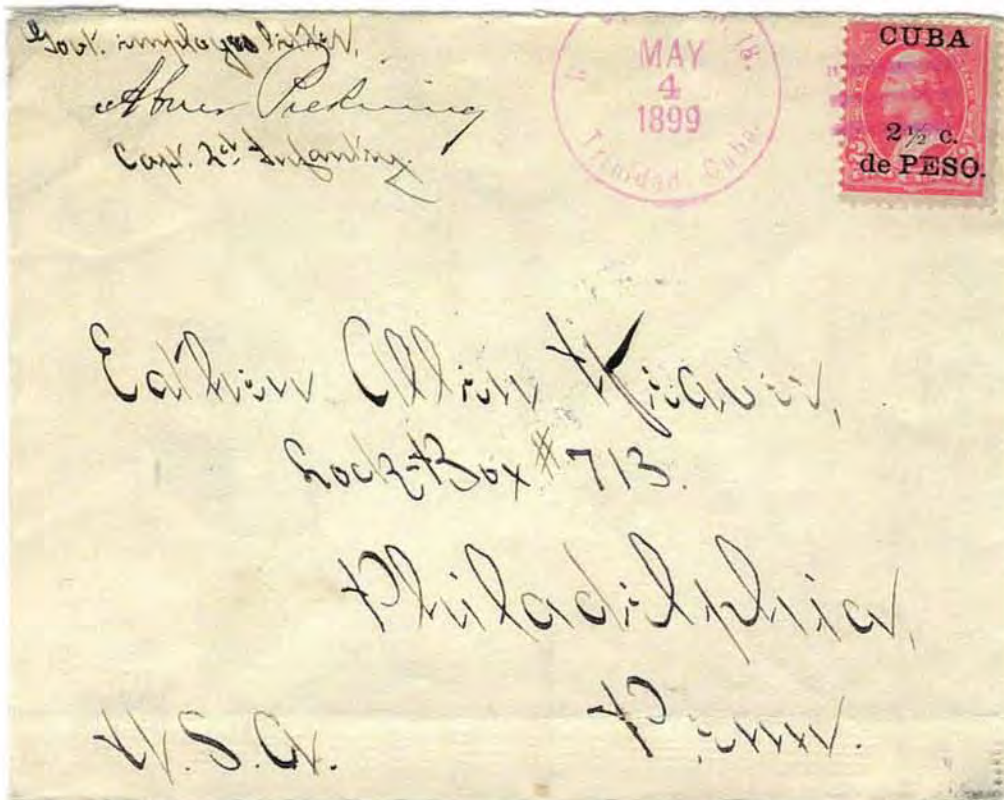 Govt. employes letter,
Abner Pickering
Capt. 2d Infantry.
MAY
4
1899
Trinidad, Cuba.
CUBA
2½ c.
de PESO.
Allen
Lock-Box #713.
Philadelphia,
Penn.
U.S.A.